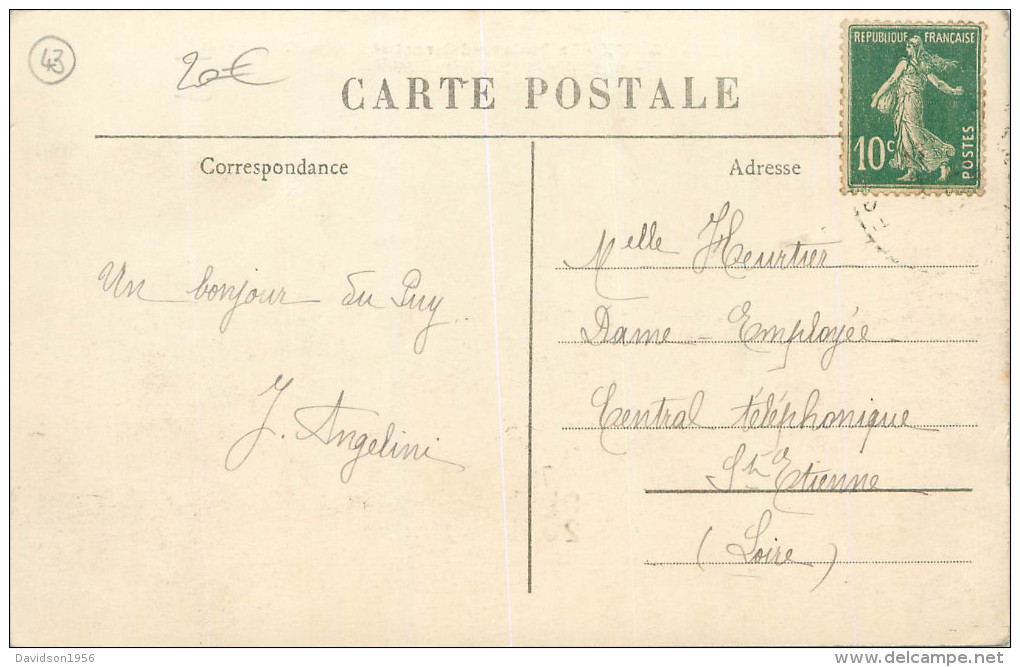 43
20€
CARTE POSTALE
REPUBLIQUE FRANÇAISE
10c
POSTES
Correspondance
Adresse
Un bonjour du Puy
J. Angelini
Melle Heurtier
Dame - Employée
Central téléphonique
St Etienne
(Loire)
Davidson1956
www.delcampe.net